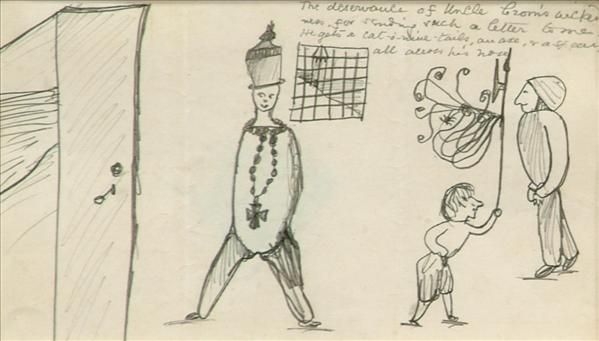 The deservance of Uncle Crom's wicked
ness, for sending such a letter to me.
He gets a cat-o-nine-tails, an axe,
all across his nose